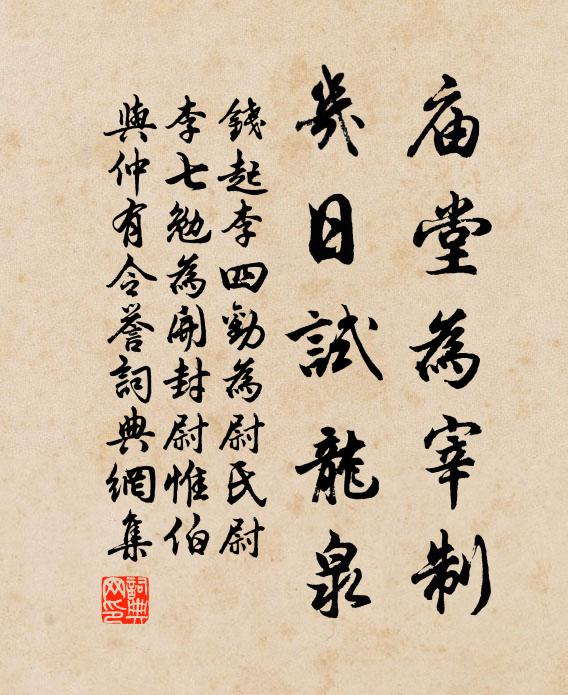 庙堂為宰制
幾日試龍泉
錢起李四勸為尉氏尉
李七勉為開封尉惟伯
與仲有令譽詞典網集
詞典網印